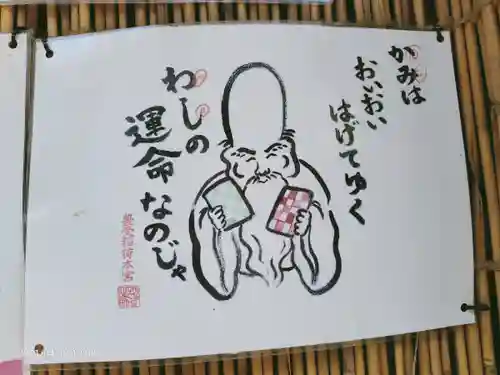 かみは
おいおい
はげてゆく
わしの
運命なのじゃ